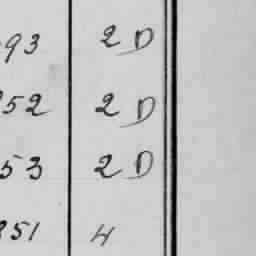 93 2 D
852 2 D
53 2 D
851 H